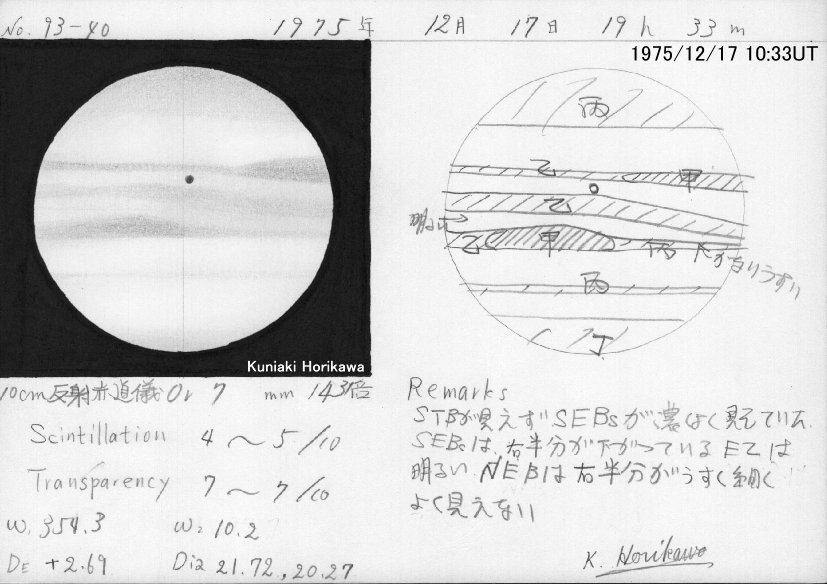 No. 93-40 1975年 12月 17日 19h 33m
1975/12/17 10:33UT
丙
乙 甲
乙
明るい
乙 甲 丙 かなりうすい
丙
丁
Kuniaki Horikawa
10cm反射赤道儀 Or 7 mm 143倍
Scintillation 4 ~ 5/10
Transparency 7 ~ 7/10
ω1 354.3 ω2 10.2
DE +2.69 Dia 21.72, 20.27
Remarks
STBが見えずSEBsが濃く見えている.
SEBsは、右半分が下がっている EZは
明るい NEBは右半分がうすく細く
よく見えない
K. Horikawa